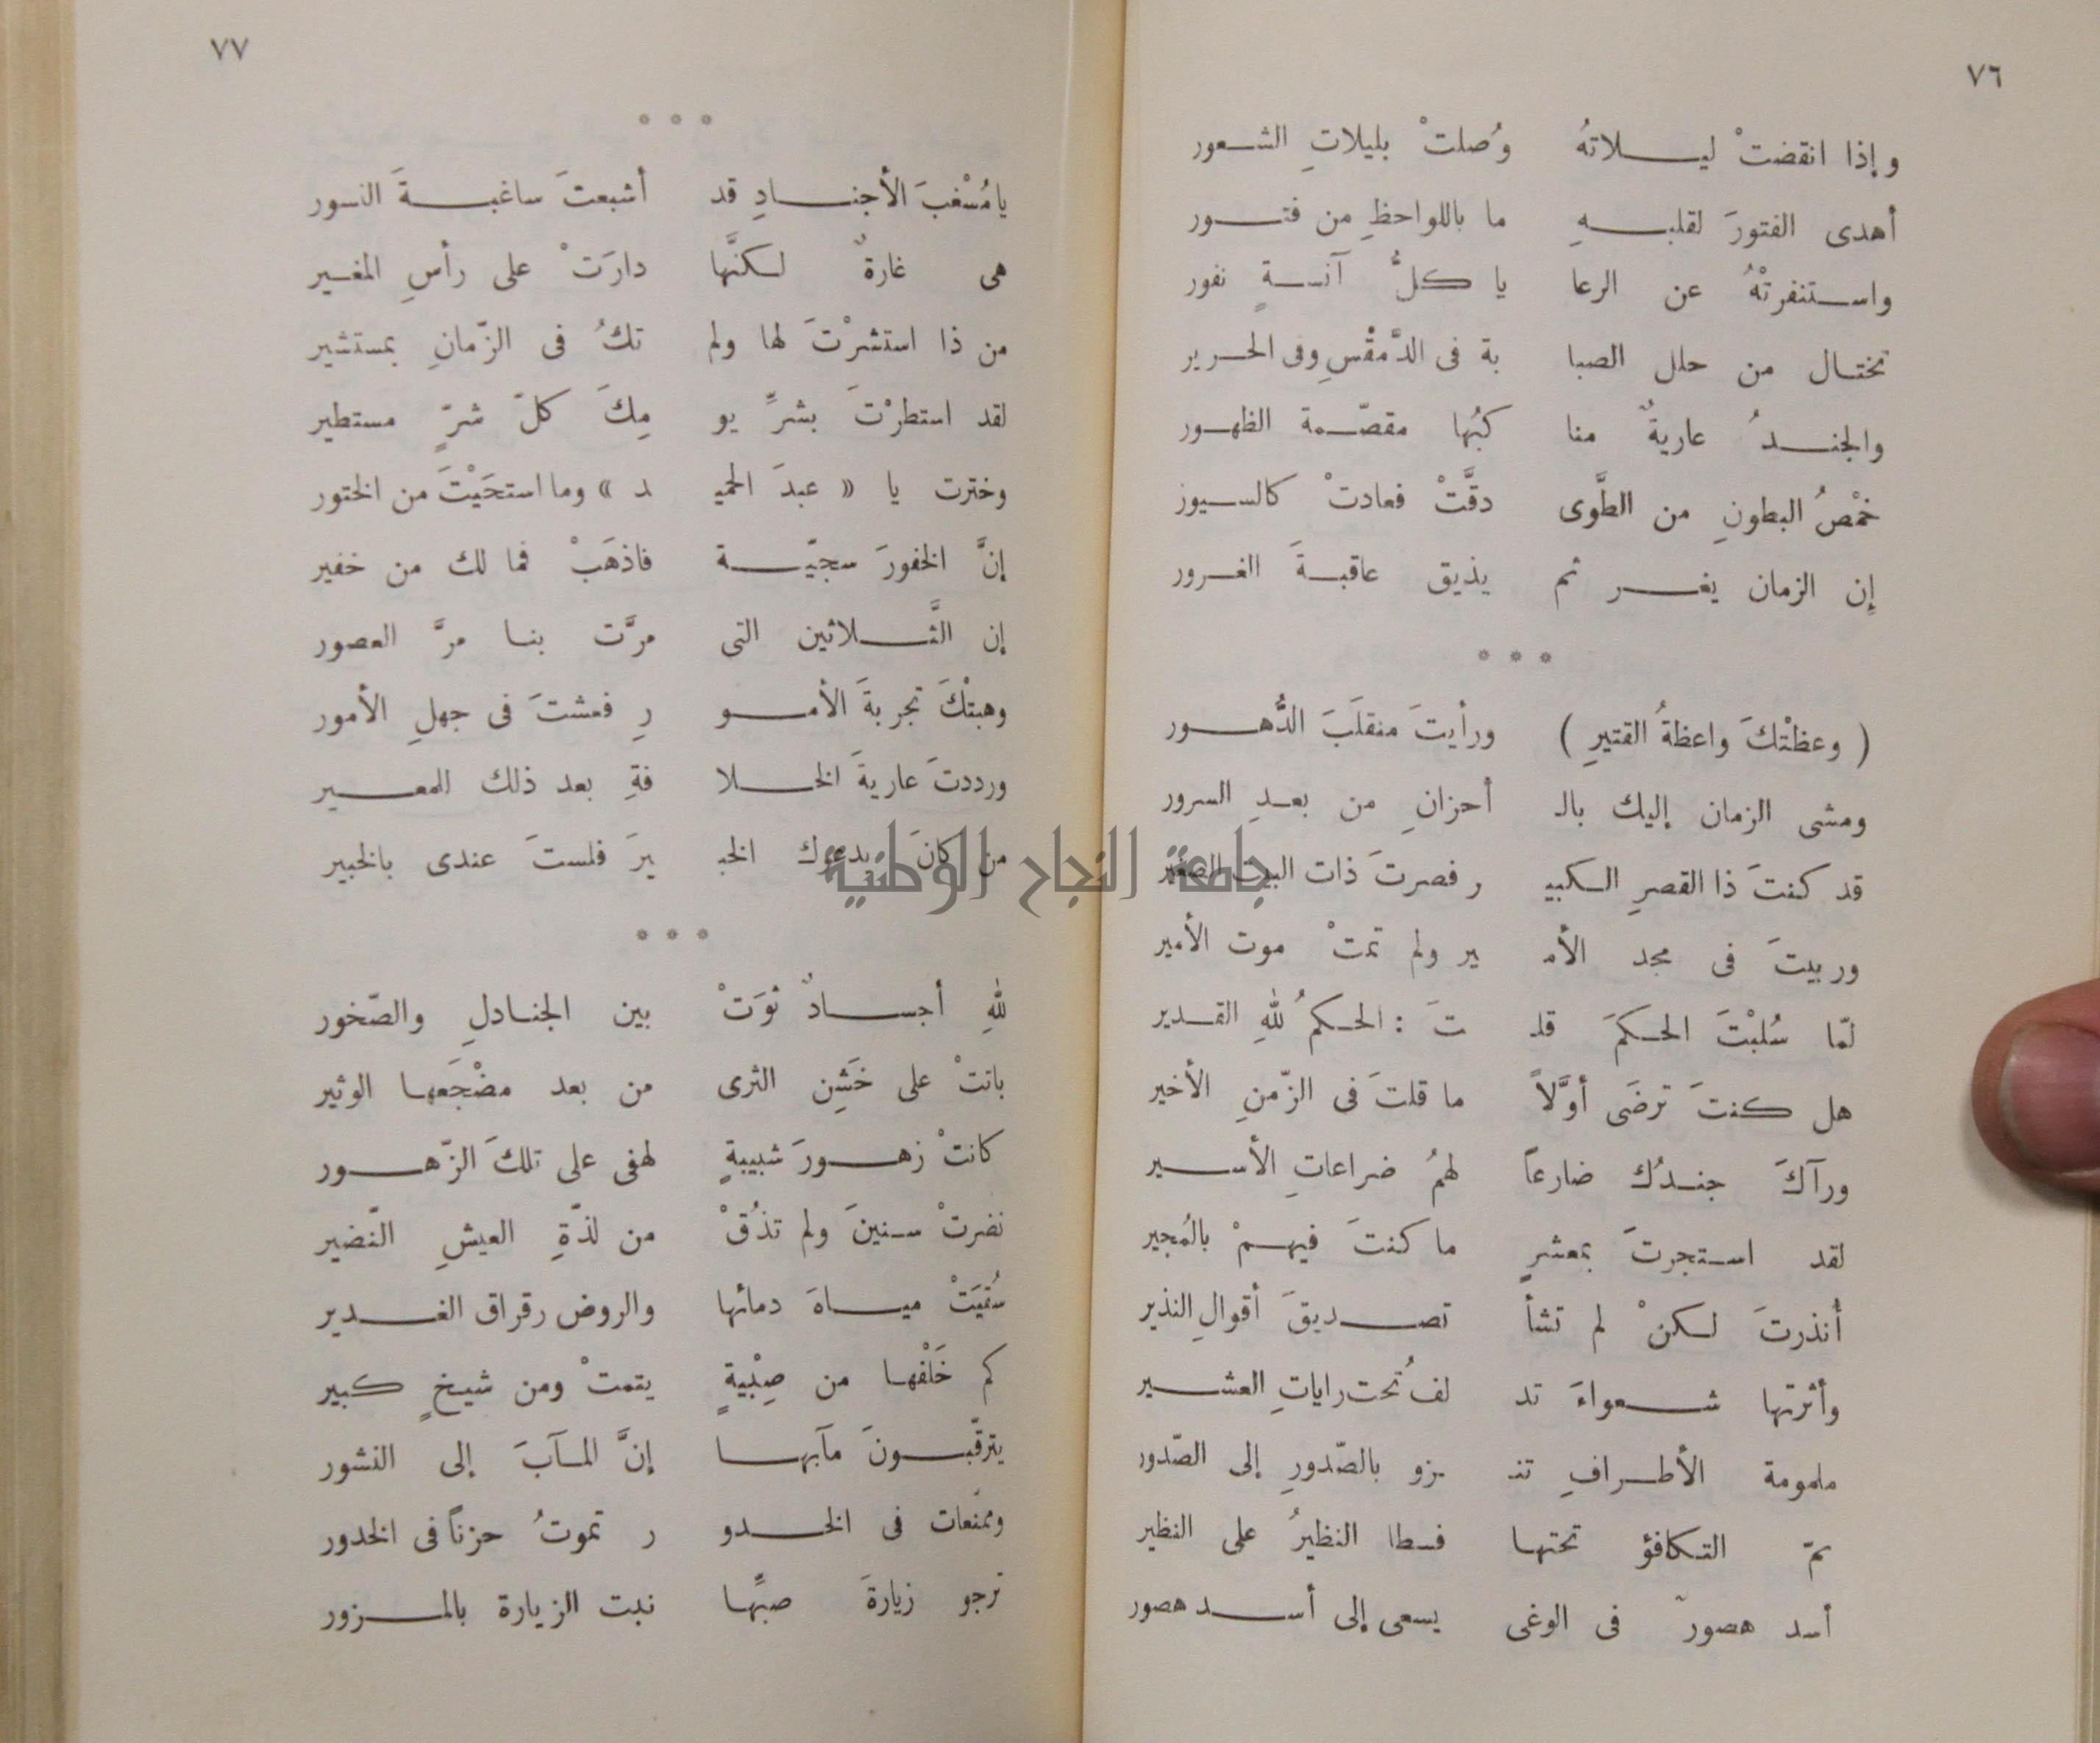 ٧٦
وإذا انقضتْ ليـلاتهُ وُصلتْ بليلاتِ الشعور
أهدى الفتورَ لقلبهِ ما باللواحظِ من فتور
واستنفرتْهُ عن الرعا يا كلُّ آنسةٍ نفور
تختال من حلل الصبا بة فى الدَّمقْسِ وفى الحرير
والجندُ عاريةٌ منا كبُها مقصّمة الظهور
خمْصُ البطونِ من الطَّوى دقَّتْ فعادتْ كالسيوز
إن الزمان يغر ثم يذيق عاقبةَ الغرور
* * *
( وعظتْكَ واعظةُ القتيرِ ) ورأيتَ منقلَبَ الدُّهور
ومشى الزمان إليك بالـ أحزانِ من بعدِ السرور
قد كنتَ ذا القصرِ الكبيـ ر فصرتَ ذات البيت الصغير
وربيتَ فى مجد الأمـ ير ولم تمتْ موت الأمير
لمّا سُلبْتَ الحكمَ قلـ تَ : الحكمُ للهِ القدير
هل كنتَ ترضَى أوَّلاً ما قلتَ فى الزّمنِ الأخير
ورآكَ جندُك ضارعاً لهمُ ضراعاتِ الأسير
لقد استجرتَ بمعشرٍ ما كنتَ فيهمْ بالمُجير
أُنذرتَ لكنْ لم تشأ تصديقَ أقوالِ النذير
وأثرتها شعواءَ تد لفُ تحت راياتِ العشير
ململومة الأطرافِ تنـ ـزو بالصّدورِ إلى الصّدور
تمّ التكافؤ تحتها فسطا النظيرُ على النظير
أسد هصورٌ فى الوغى يسعى إلى أسد هصور
٧٧
* * *
يا مُسْغبَ الأجنادِ قد أشبعتَ ساغبةَ النسور
هى غارةٌ لكنَّها دارَتْ على رأسِ المغير
من ذا استشرْتَ لها ولم تكُ فى الزّمانِ بمستشير
لقد استطرْتَ بشرٍّ يو مِكَ كلّ شرٍّ مستطير
وخترت يا « عبدَ الحميـ د » وما استحَيْتَ من الختور
إنَّ الخفورَ سجيّة فاذهَبْ فما لك من خفير
إن الثَّلاثين التى مرَّت بنا مرَّ العصور
وهبتْكَ تجربةَ الأمو رِ فعشتَ فى جهلِ الأمور
ورددتَ عاريةَ الخلا فةِ بعد ذلك للمعير
من كانَ يدعوك الخبـ يرَ فلستَ عندى بالخبير
* * *
للهِ أجسادٌ ثوَتْ بين الجنادلِ والصّخور
باتتْ على خَشِنِ الثرى من بعد مضْجَعها الوثير
كانتْ زهورَ شبيبةٍ لهفى على تلكَ الزّهور
نضرتْ سنينَ ولم تذُقْ من لذّةِ العيشِ النّضير
سُقيَتْ مياهَ دمائها والروض رقراق الغدير
كم خَلْفها من صِبْيةٍ يتمتْ ومن شيخٍ كبير
يترقّبونَ مآبها إنَّ المآبَ إلى النشور
وممنَّعات فى الخدو ر تموتُ حزناً فى الخدور
ترجو زيارةَ صبِّها نبت الزيارة بالمزور
جامعة النجاح الوطنية